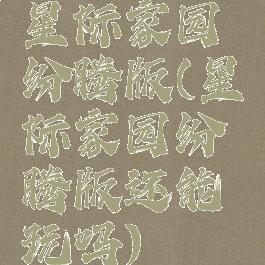 星际家园
纷腾版(星
际家园纷
腾版还能
玩吗)